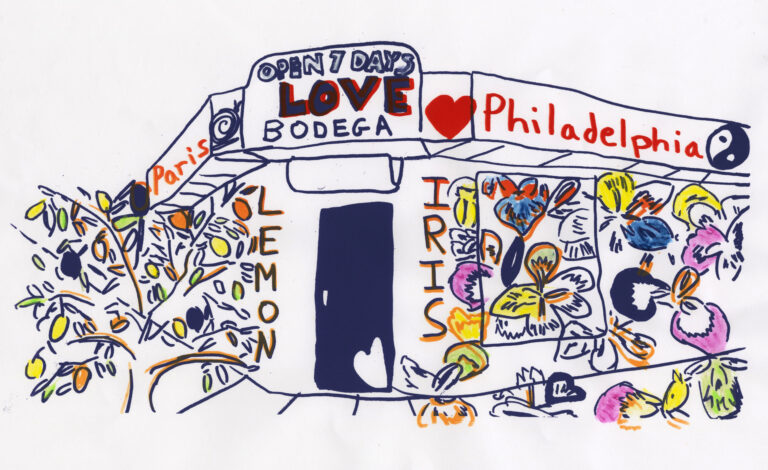 OPEN 7 DAYS
LOVE
BODEGA
Paris
Philadelphia
LEMON
IRIS